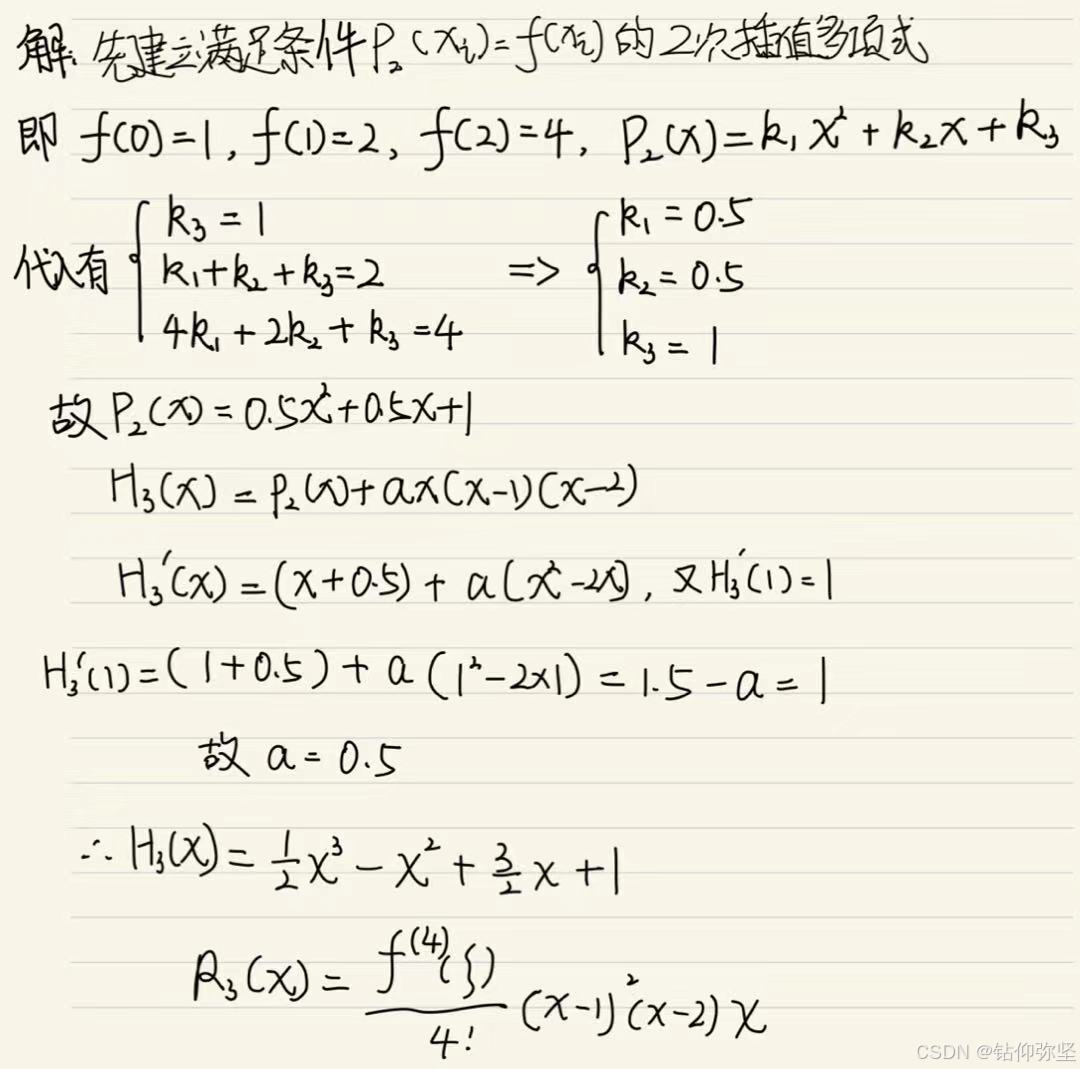 解: 先建立满足条件P₂(xᵢ)=f(xᵢ)的2次插值多项式
即 f(0)=1, f(1)=2, f(2)=4, P₂(x)=k₁x²+k₂x+k₃
代入有 { k₃=1 => { k₁=0.5
k₁+k₂+k₃=2 k₂=0.5
4k₁+2k₂+k₃=4 k₃=1
故 P₂(x)=0.5x²+0.5x+1
H₃(x)=P₂(x)+ax(x-1)(x-2)
H₃'(x)=(x+0.5)+a(x²-2x), 又H₃'(1)=1
H₃'(1)=(1+0.5)+a(1²-2×1)=1.5-a=1
故 a=0.5
∴ H₃(x)=1/2x³-x²+3/2x+1
R₃(x)=f⁽⁴⁾(ξ)/4! (x-1)²(x-2)x
CSDN @钻仰弥坚